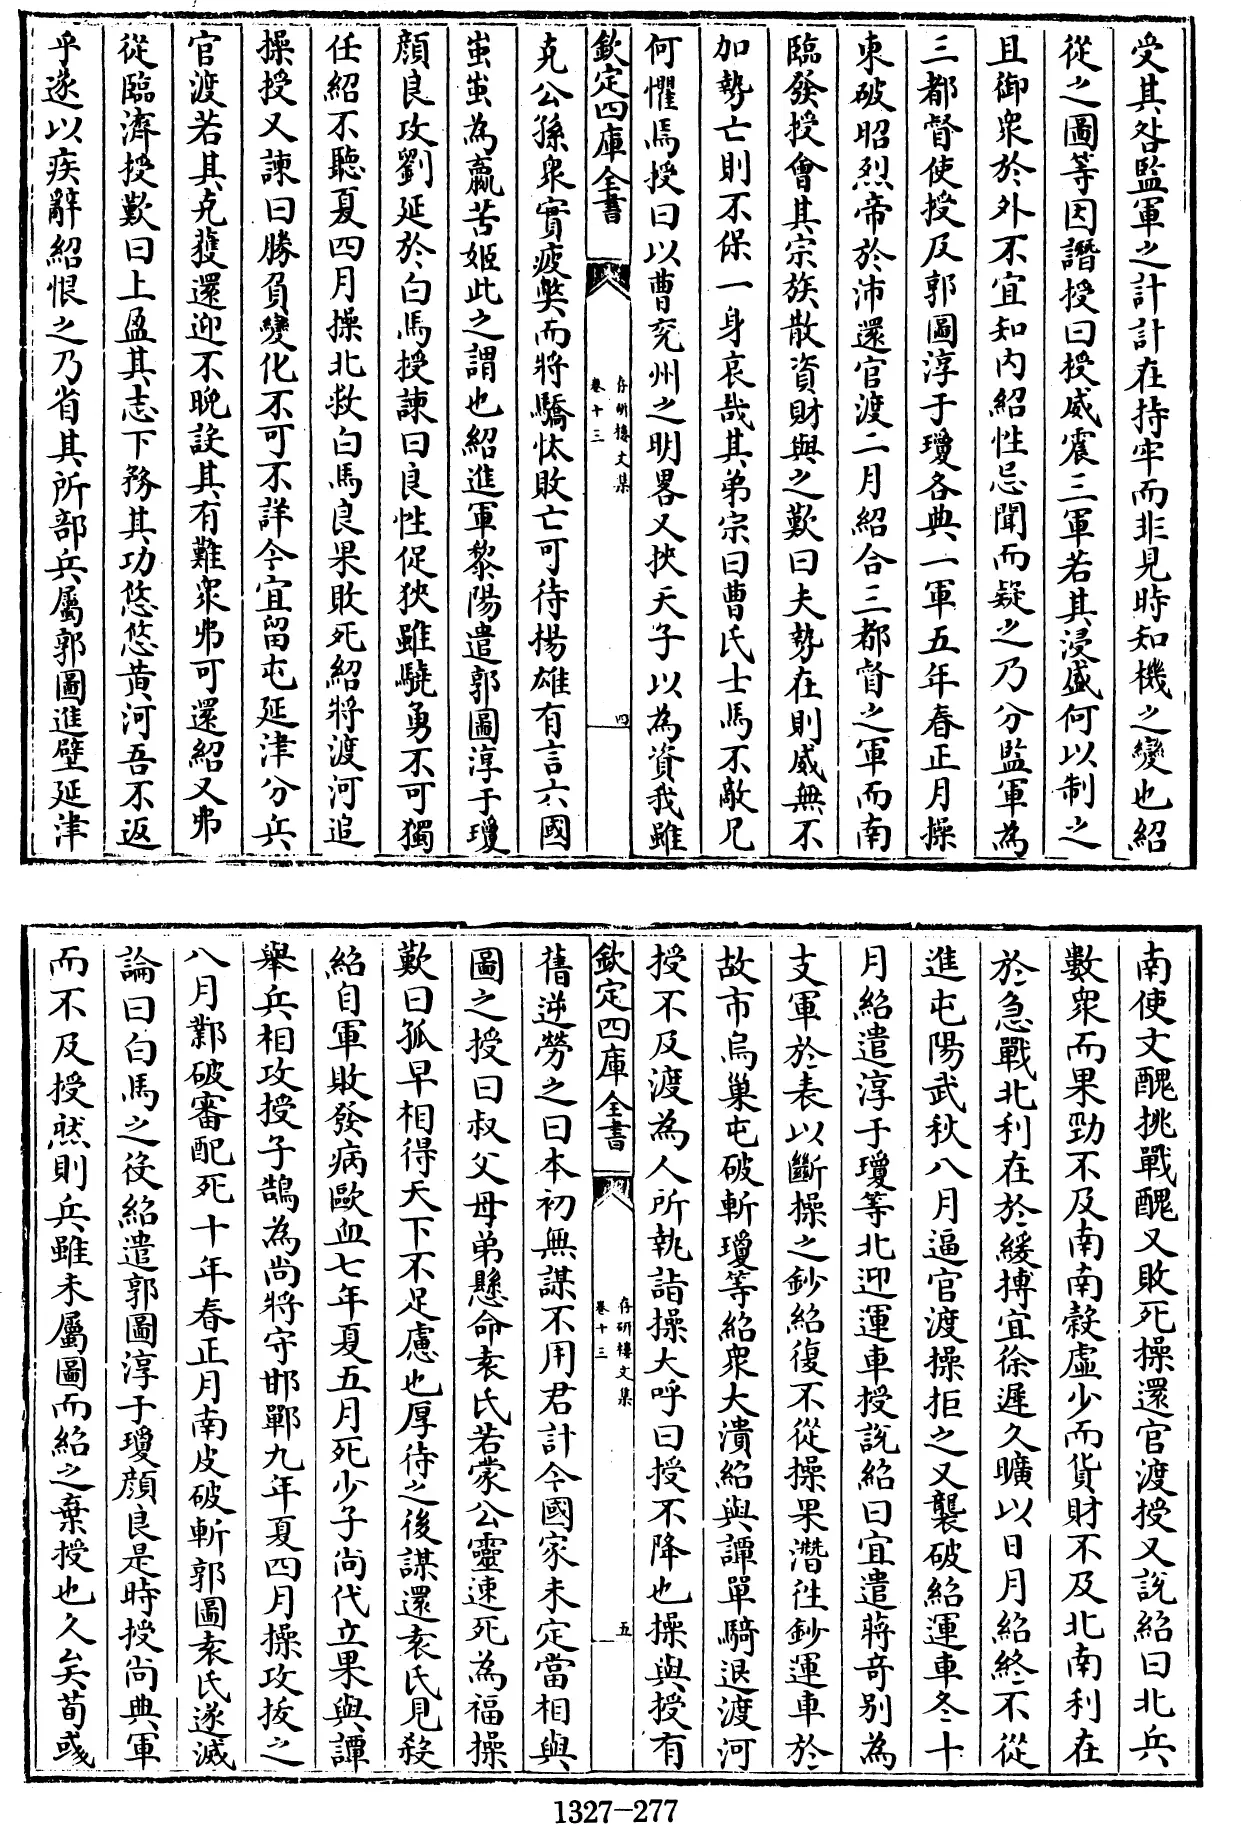 受其咎監軍之計計在持牢而非見時知機之變也紹
從之圖等因譖授曰授威震三軍若其浸盛何以制之
且御衆於外不宜知内紹性忌聞而疑之乃分監軍為
三都督使授及郭圖淳于瓊各典一軍五年春正月操
東破昭烈帝於沛還官渡二月紹合三都督之軍而南
臨發授會其宗族散資財與之歎曰夫勢在則威無不
加勢亡則不保一身哀哉其弟宗曰曹氏士馬不敵兄
何懼焉授曰以曹兖州之明畧又挾天子以為資我雖
欽定四庫全書
存研樓文集
卷十三
四
克公孫衆實疲獘而將驕忲敗亡可待楊雄有言六國
蚩蚩為嬴苦姬此之謂也紹進軍黎陽遣郭圖淳于瓊
顔良攻劉延於白馬授諫曰良性促狹雖驍勇不可獨
任紹不聽夏四月操北救白馬良果敗死紹將渡河追
操授又諫曰勝負變化不可不詳今宜留屯延津分兵
官渡若其克獲還迎不晚設其有難衆弗可還紹又弗
從臨濟授歎曰上盈其志下務其功悠悠黄河吾不返
乎遂以疾辭紹恨之乃省其所部兵屬郭圖進壁延津
南使文醜挑戰醜又敗死操還官渡授又說紹曰北兵
數衆而果勁不及南南榖虛少而貨財不及北南利在
於急戰北利在於緩搏宜徐遲久曠以日月紹終不從
進屯陽武秋八月逼官渡操拒之又襲破紹運車冬十
月紹遣淳于瓊等北迎運車授說紹曰宜遣蔣竒别為
支軍於表以斷操之鈔紹復不從操果潛往鈔運車於
故市烏巢屯破斬瓊等紹衆大潰紹與譚單騎退渡河
授不及渡為人所執詣操大呼曰授不降也操與授有
欽定四庫全書
存研樓文集
卷十三
五
舊逆勞之曰本初無謀不用君計今國家未定當相與
圖之授曰叔父母弟懸命袁氏若蒙公靈速死為福操
歎曰孤早相得天下不足慮也厚待之後謀還袁氏見殺
紹自軍敗發病歐血七年夏五月死少子尚代立果與譚
舉兵相攻授子鵠為尚將守邯鄲九年夏四月操攻拔之
八月鄴破審配死十年春正月南皮破斬郭圖袁氏遂滅
論曰白馬之役紹遣郭圖淳于瓊顔良是時授尚典軍
而不及授然則兵雖未屬圖而紹之棄授也久矣荀彧
1327-277